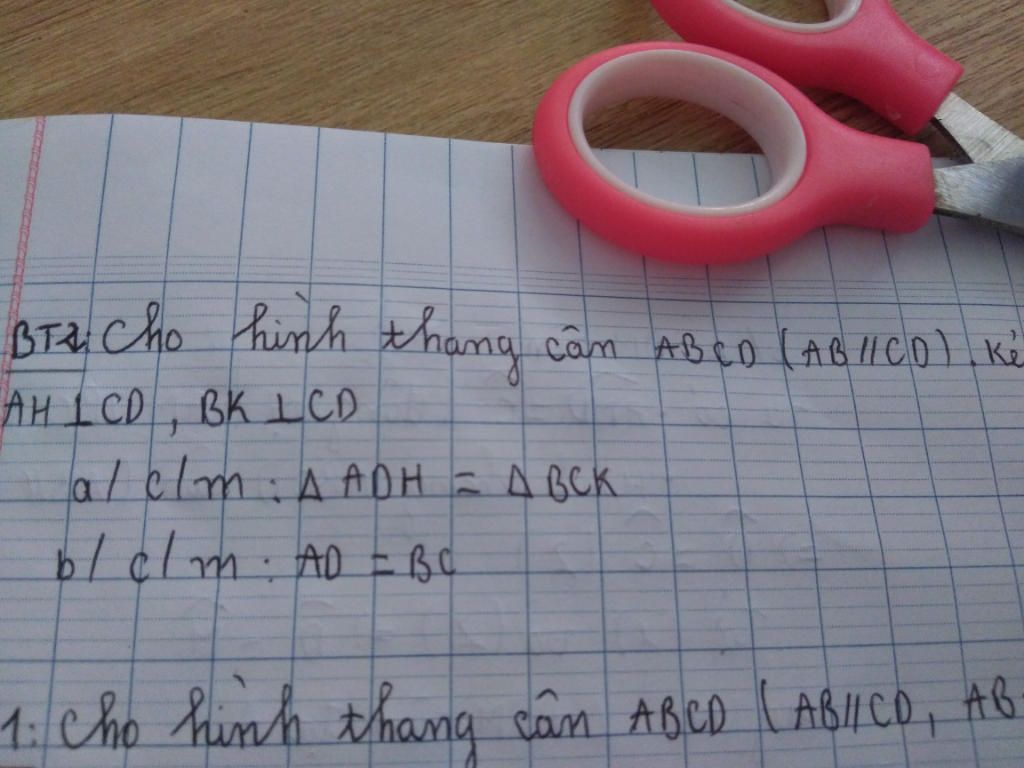 BT2: Cho hình thang cân ABCD (AB//CD). Kẻ
AH⊥CD, BK⊥CD
a/ c/m : Δ ADH = Δ BCK
b/ c/m : AD = BC
1: Cho hình thang cân ABCD (AB//CD, AB